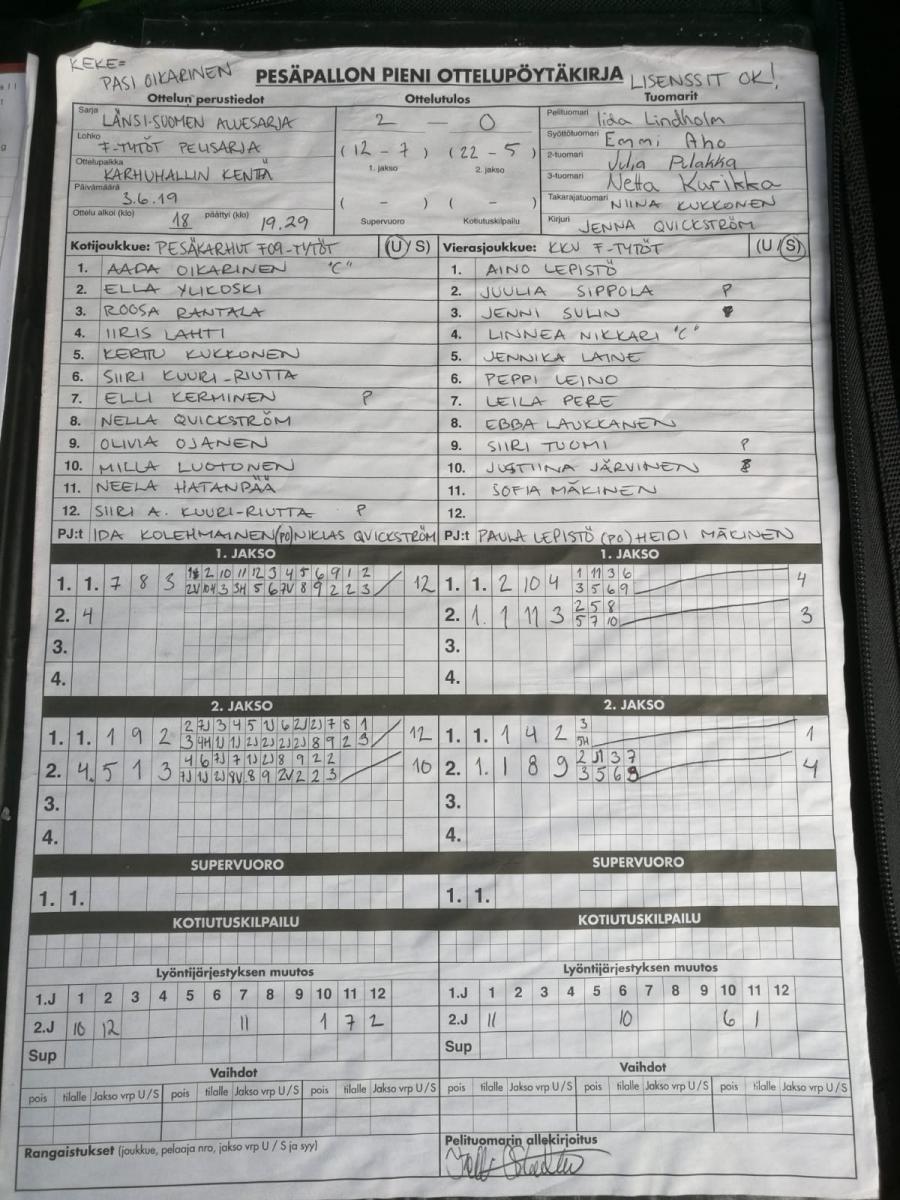 KEKE=
PASI OIKARINEN
PESÄPALLON PIENI OTTELUPÖYTÄKIRJA
LISENSSIT OK!
Ottelun perustiedot
Ottelutulos
Tuomarit
Sarja LÄNSI-SUOMEN ALUESARJA
Lohko F-TYTÖT PELISARJA
Ottelupaikka KARHUHALLIN KENTÄ
Päivämäärä 3.6.19
Ottelu alkoi (klo) 18 päättyi (klo) 19.29
2 — 0
(12 - 7) (22 - 5)
1. jakso 2. jakso
( - ) ( - )
Supervuoro Kotiutuskilpailu
Pelituomari Iida Lindholm
Syöttötuomari Emmi Aho
2-tuomari Julia Pulakka
3-tuomari Netta Kurikka
Takarajatuomari NIINA KUKKONEN
Kirjuri JENNA QUICKSTRÖM
Kotijoukkue: PESÄKARHUT F09-TYTÖT (U/S)
1. AADA OIKARINEN "C"
2. ELLA YLIKOSKI
3. ROOSA RANTALA
4. IIRIS LAHTI
5. KERTTU KUKKONEN
6. SIIRI KUURI-RIUTTA
7. ELLI KERMINEN P
8. NELLA QUICKSTRÖM
9. OLIVIA OJANEN
10. MILLA LUOTONEN
11. NEELA HATANPÄÄ
12. SIIRI A. KUURI-RIUTTA P
PJ:t IDA KOLEHMAINEN (PO) NIKLAS QUICKSTRÖM
Vierasjoukkue: KKV F-TYTÖT (U/S)
1. AINO LEPISTÖ
2. JUULIA SIPPOLA P
3. JENNI SULIN
4. LINNEA NIKKARI "C"
5. JENNIKA LAINE
6. PEPPI LEINO
7. LEILA PERE
8. EBBA LAUKKANEN
9. SIIRI TUOMI P
10. JUSTIINA JÄRVINEN
11. SOFIA MÄKINEN
12.
PJ:t PAULA LEPISTÖ (PO) HEIDI MÄKINEN
1. JAKSO
1. 1. 7 8 3 12
2. 4
3.
4.
1. JAKSO
1. 1. 2 10 4 1 11 3 6 4
3 5 6 9
2. 1. 1 11 3 2 5 8 3
5 7 10
3.
4.
2. JAKSO
1. 1. 1 9 2 12
2. 4. 5 1 3 10
3.
4.
2. JAKSO
1. 1. 1 4 2 3 1
5H
2. 1. 1 8 9 4
3.
4.
SUPERVUORO
1. 1.
SUPERVUORO
1. 1.
KOTIUTUSKILPAILU
KOTIUTUSKILPAILU
Lyöntijärjestyksen muutos
1.J 1 2 3 4 5 6 7 8 9 10 11 12
2.J 10 12 11 1 7 2
Sup
Lyöntijärjestyksen muutos
1.J 1 2 3 4 5 6 7 8 9 10 11 12
2.J 11 10 6 1
Sup
Vaihdot
pois tilalle Jakso vrp U/S pois tilalle Jakso vrp U/S pois tilalle Jakso vrp U/S
Vaihdot
pois tilalle Jakso vrp U/S pois tilalle Jakso vrp U/S pois tilalle Jakso vrp U/S
Rangaistukset (joukkue, pelaaja nro, jakso vrp U / S ja syy)
Pelituomarin allekirjoitus